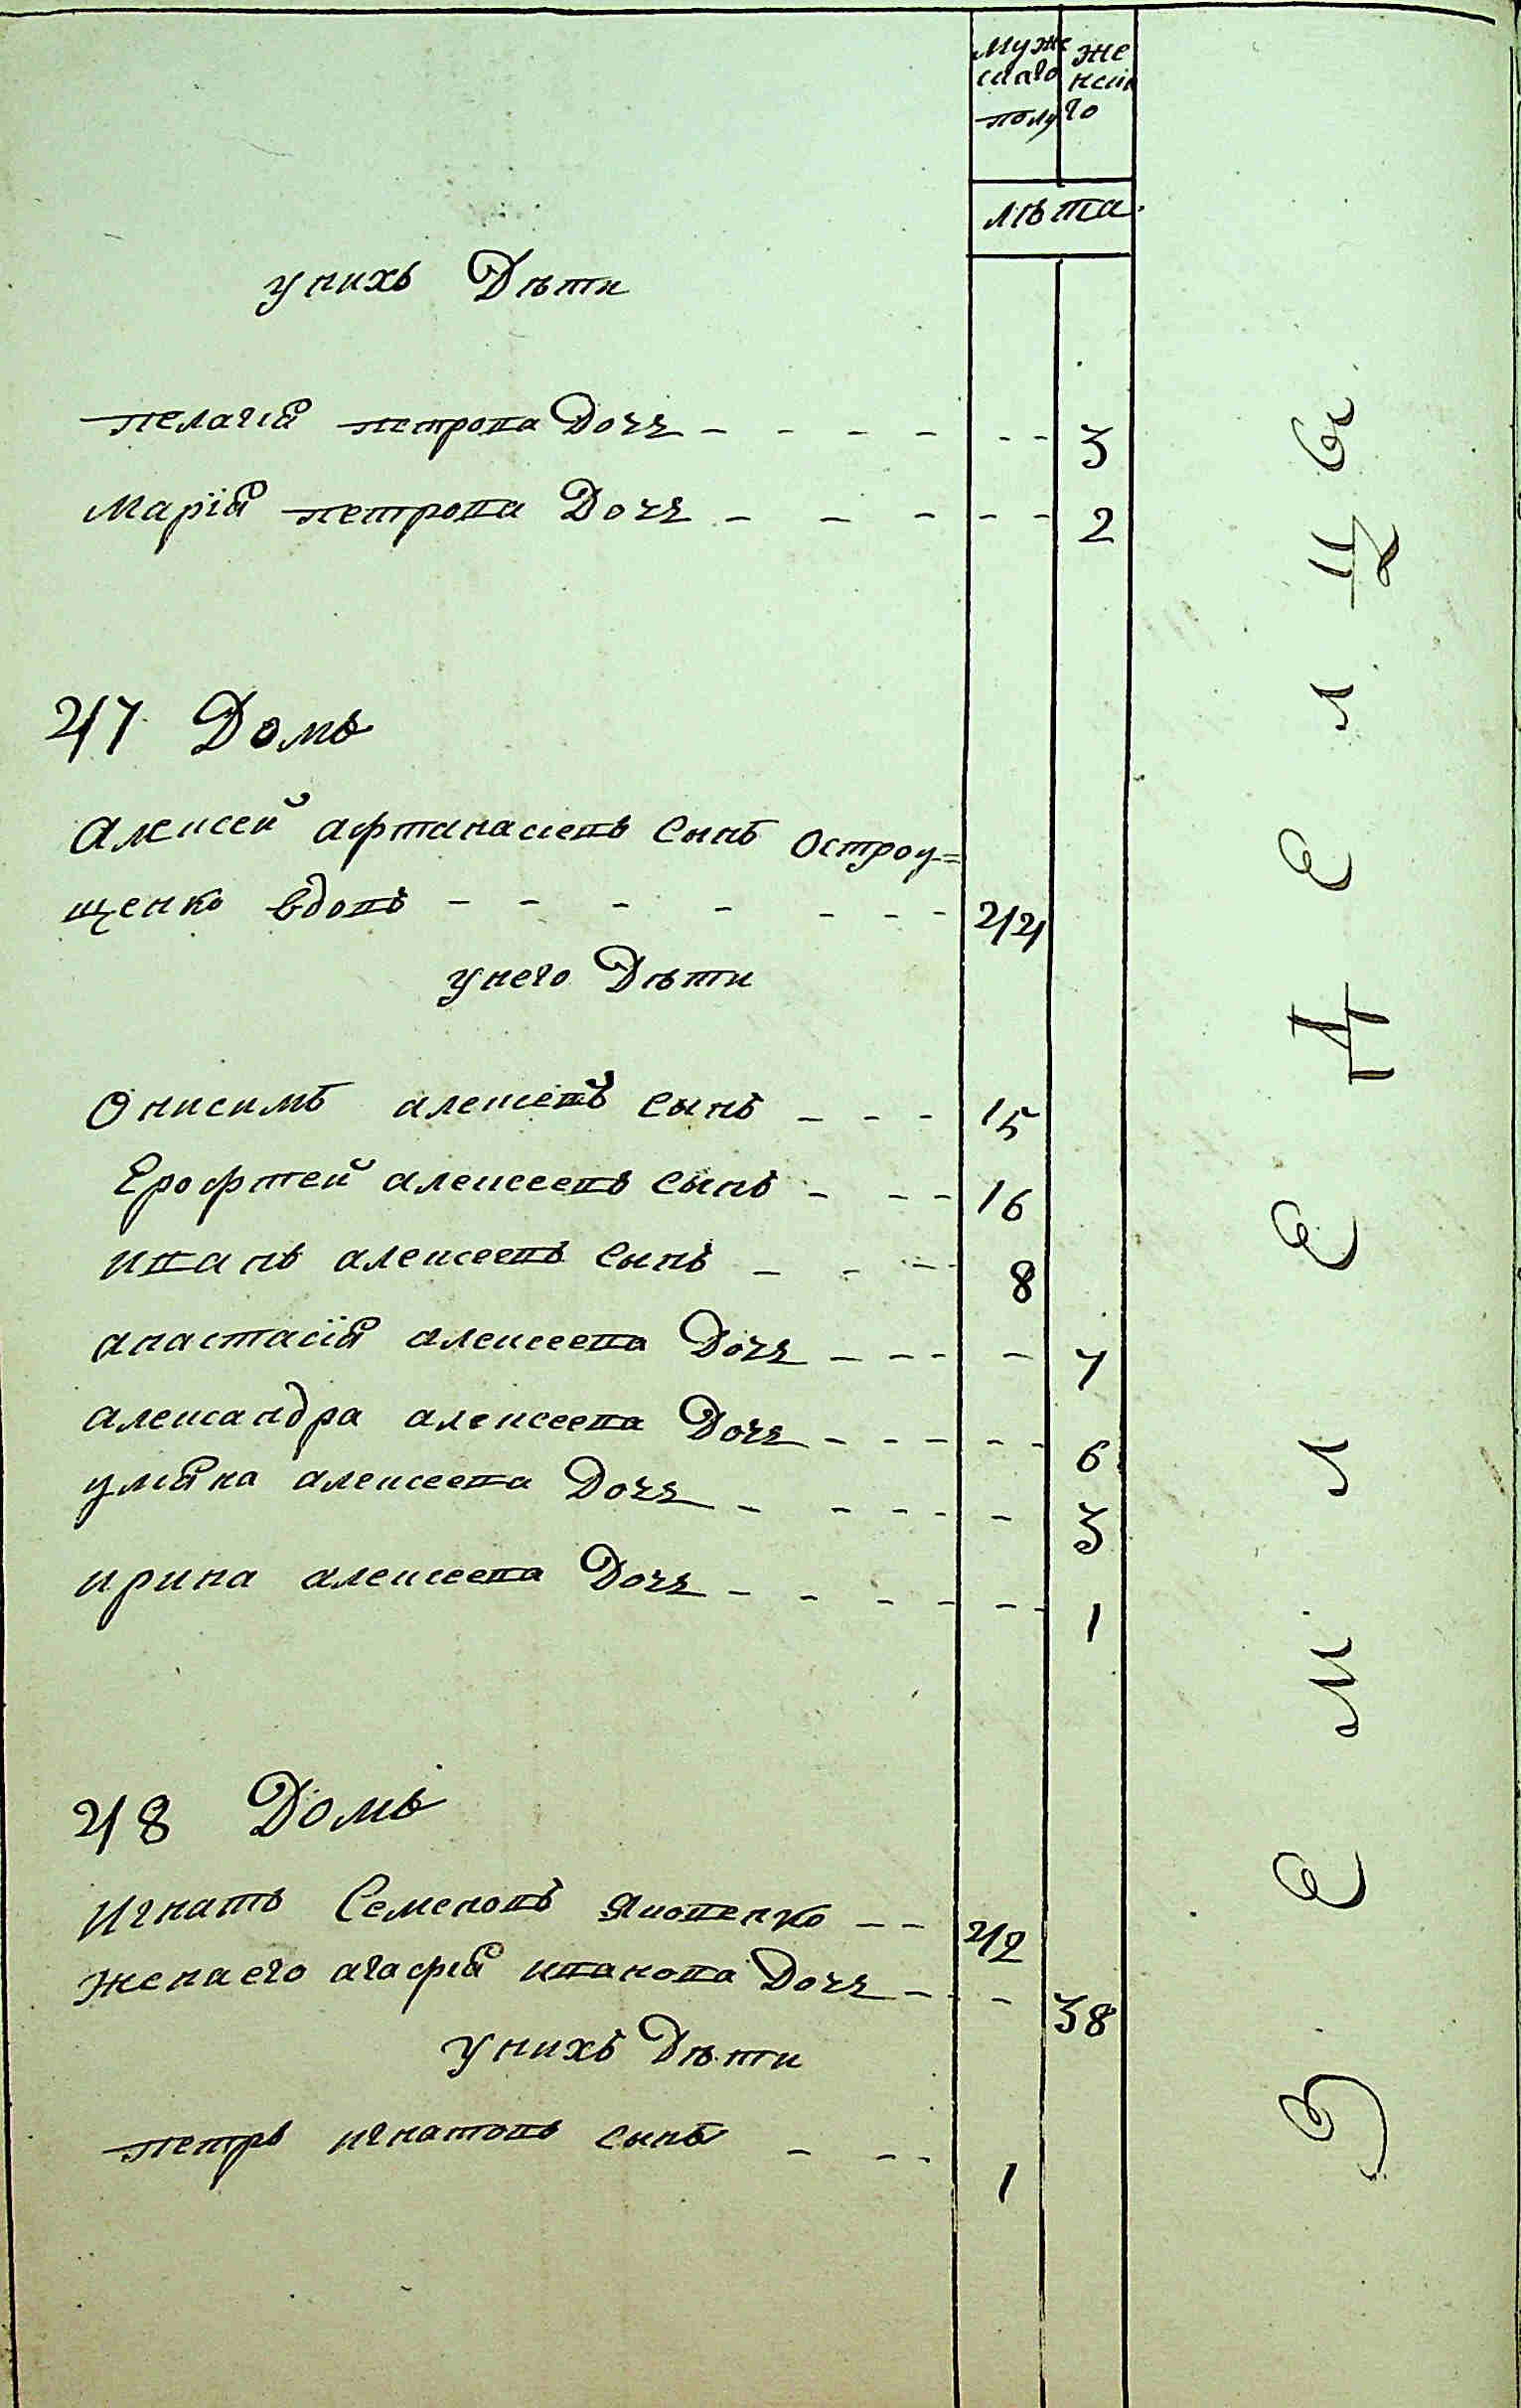 Муже жен
скаго скаго
полу
лѣта
у нихъ Дѣти
пелагія петрова Дочь - - - - - - 3
Марія петрова Дочь - - - - - 2
47 Домъ
Алексей афтанасиевъ Сынъ Остроу=
щенко вдовъ - - - - - - - 44
у него Дѣти
Онисимъ алексеевъ сынъ - - - 15
Ерофтей алексеевъ сынъ - - - 16
иванъ алексеевъ сынъ - - - 8
анастасія алексеева Дочь - - - - 7
александра алексеева Дочь - - - - - 6
улияна алексеева Дочь - - - - - 3
ирина алексеева Дочь - - - - - - 1
48 Домъ
Игнатъ Семеновъ Яковенко - - 42
жена его агафія иванова Дочь - - - 38
у нихъ Дѣти
петръ игнатовъ сынъ - - - 1
З е м л е д е л ц ы